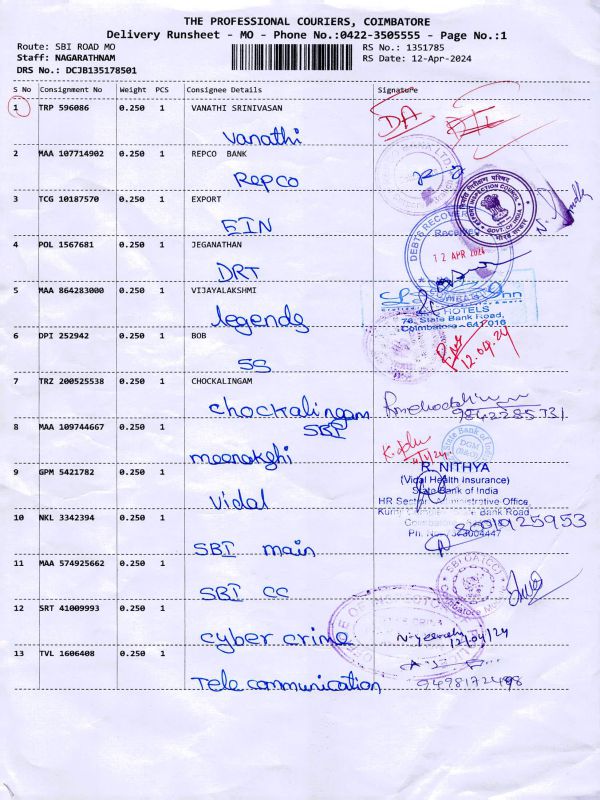 THE PROFESSIONAL COURIERS, COIMBATORE
Delivery Runsheet - MO - Phone No.:0422-3505555 - Page No.:1
Route: SBI ROAD MO RS No.: 1351785
Staff: NAGARATHNAM RS Date: 12-Apr-2024
DRS No.: DCJB135178501
S No Consignment No Weight PCS Consignee Details Signature
1 TRP 596086 0.250 1 VANATHI SRINIVASAN
DA
vanathi
2 MAA 107714902 0.250 1 REPCO BANK
Repco
3 TCG 10187570 0.250 1 EXPORT
EXPORT INSPECTION COUNCIL
GOVT. OF INDIA
EIN
4 POL 1567681 0.250 1 JEGANATHAN
DEBTS RECOVERY
Received
12 APR 2024
DRT
5 MAA 864283000 0.250 1 VIJAYALAKSHMI
HOTELS
76, State Bank Road,
Coimbatore - 641 018
legends
6 DPI 252942 0.250 1 BOB
12.04.24
SS
7 TRZ 200525538 0.250 1 CHOCKALINGAM
chockalingam
9842285731
8 MAA 109744667 0.250 1
SBI
State Bank of India
meenakshi
9 GPM 5421782 0.250 1
R. NITHYA
(Vidal Health Insurance)
State Bank of India
HR Section Administrative Office,
State Bank Road
vidal
10 NKL 3342394 0.250 1
8001925953
SBI main
11 MAA 574925662 0.250 1
SBIOA (CC)
SBI CC
12 SRT 41009993 0.250 1
cyber crime
12/04/24
13 TVL 1606408 0.250 1
Tele communication
9498172498